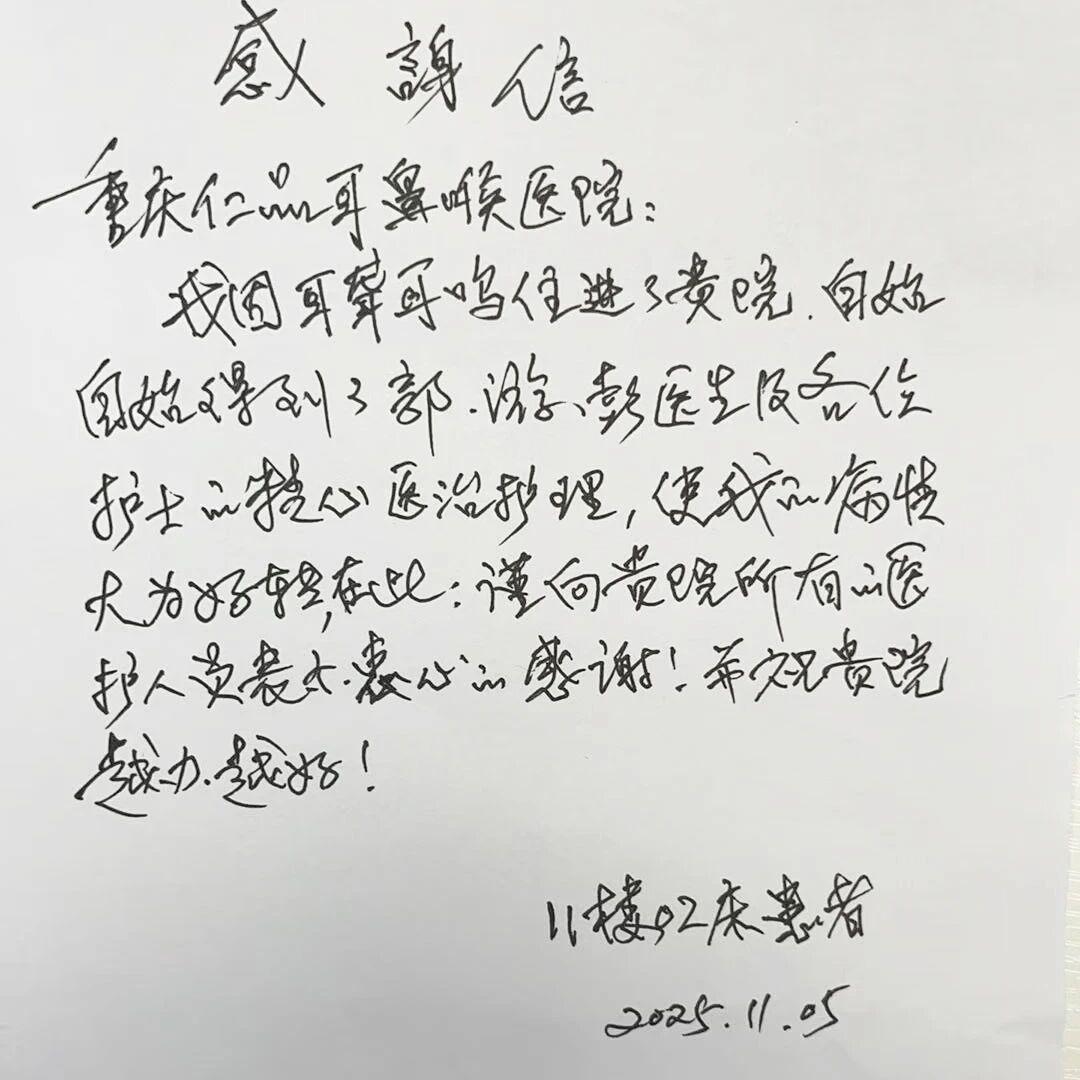 感謝信
重庆仁品耳鼻喉医院：
我因耳聋耳鸣住进了贵院.自始
自始得到了部.游、彭医生及各位
护士的精心医治护理，使我的病情
大为好转，在此：谨向贵院所有的医
护人员表示.衷心的感谢！并祝贵院
越办.越好！
11楼02床患者
2025.11.05